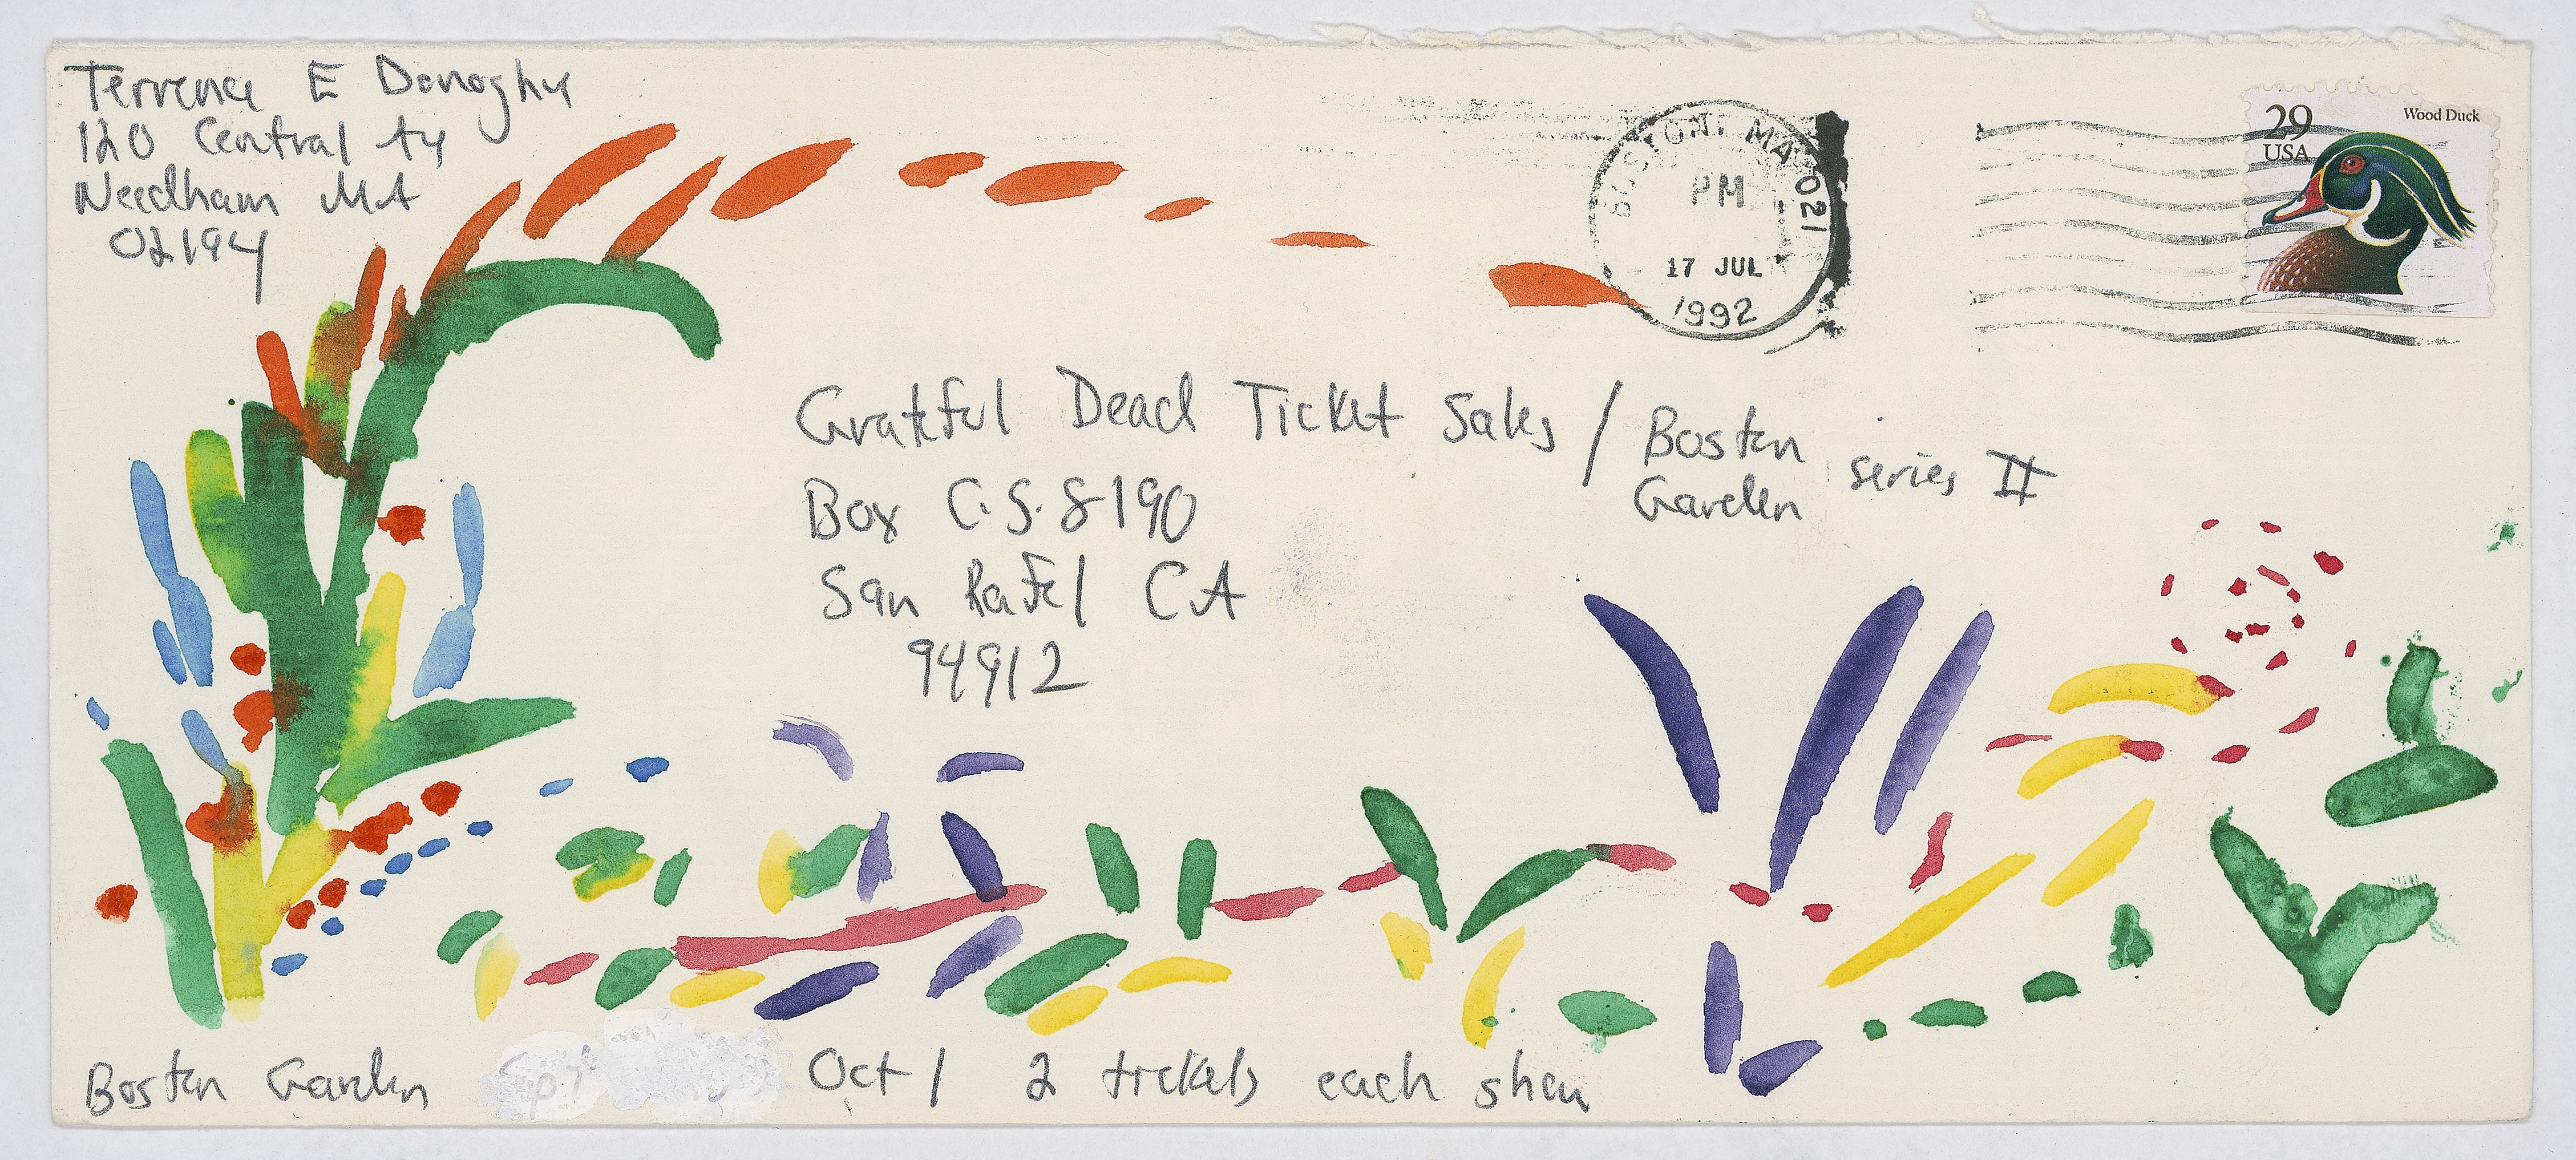 Terrence E Donoghu
120 Central Av
Needham MA
02194
BOSTON, MA 021
PM
17 JUL
1992
29
USA
Wood Duck
Grateful Dead Ticket Sales / Boston Garden series II
Box C.S. 8190
San Rafel CA
94912
Boston Garden Oct 1 2 tickets each show